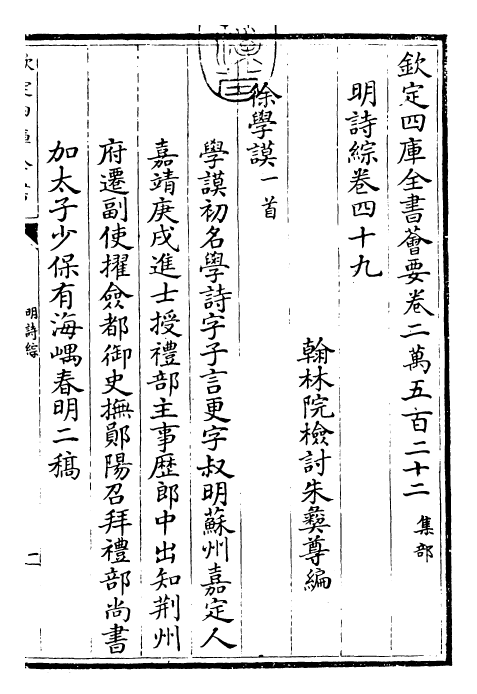 欽定四庫全書薈要卷二萬五百二十二 集部
明詩綜卷四十九
翰林院檢討朱彝尊編
徐學謨一首
學謨初名學詩字子言更字叔明蘇州嘉定人
嘉靖庚戌進士授禮部主事歷郎中出知荆州
府遷副使擢僉都御史撫鄖陽召拜禮部尚書
加太子少保有海嵎春明二稿
欽定四庫全書
明詩綜